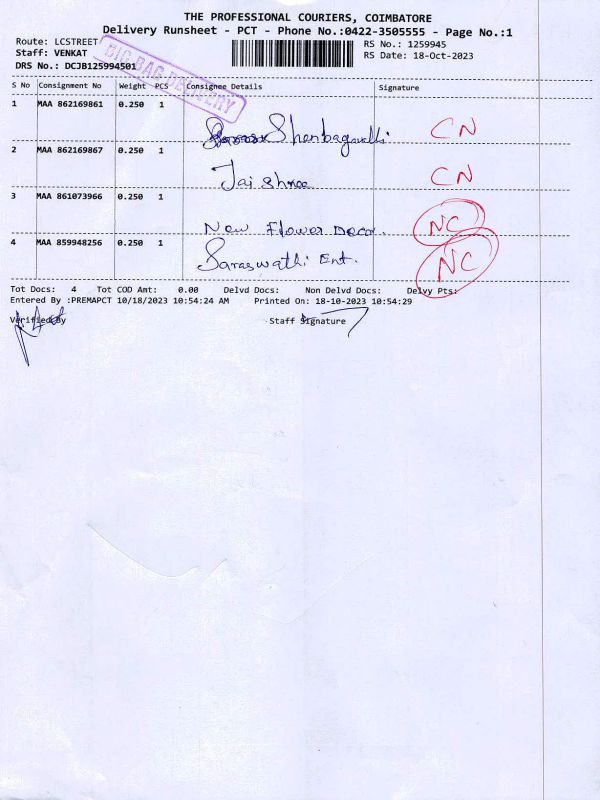 THE PROFESSIONAL COURIERS, COIMBATORE
Delivery Runsheet - PCT - Phone No.:0422-3505555 - Page No.:1
Route: LCSTREET
RS No.: 1259945
Staff: VENKAT
RS Date: 18-Oct-2023
DRS No.: DCJB125994501
BIG BAG DELIVERY
S No Consignment No Weight PCS Consignee Details Signature
1 MAA 862169861 0.250 1
Shenbagavalli CN
2 MAA 862169867 0.250 1
Jai Shree CN
3 MAA 861073966 0.250 1
New Flower Decor. NC
4 MAA 859948256 0.250 1
Saraswathi Ent. NC
Tot Docs: 4 Tot COD Amt: 0.00 Delvd Docs: Non Delvd Docs: Delvy Pts:
Entered By :PREMAPCT 10/18/2023 10:54:24 AM Printed On: 18-10-2023 10:54:29
Verified By Staff Signature